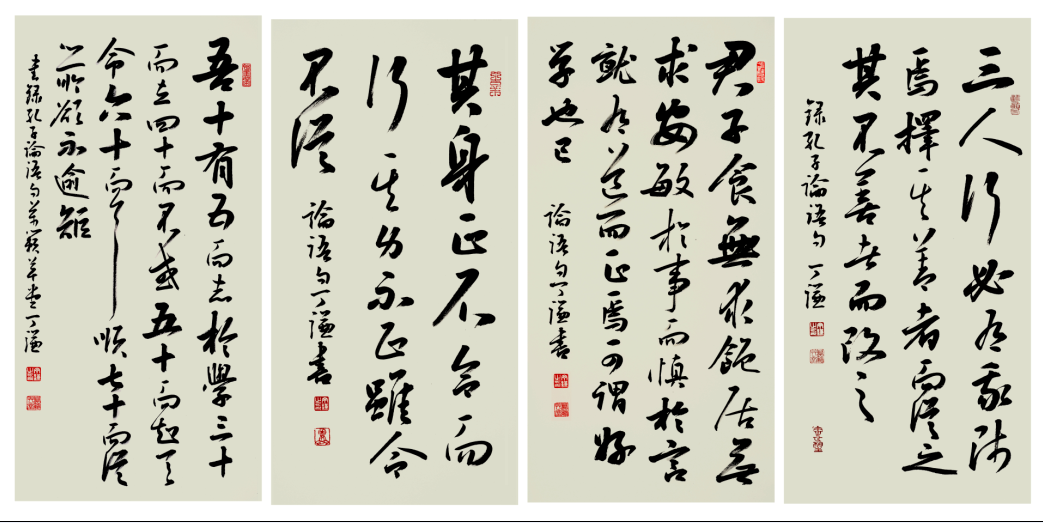 三人行必有我师
焉擇其善者而從之
其不善者而改之
錄孔子論語句 丁謙
君子食無求飽居無
求安敏於事而慎於言
就有道而正焉可謂好
学也已
論語句丁謙書
其身正不令而
行其身不正雖令
不從
論語句丁謙書
吾十有五而志於學三十
而立四十而不惑五十而知天
命六十而耳順七十而從
心所欲不逾矩
書錄孔子論語句草堂丁謙